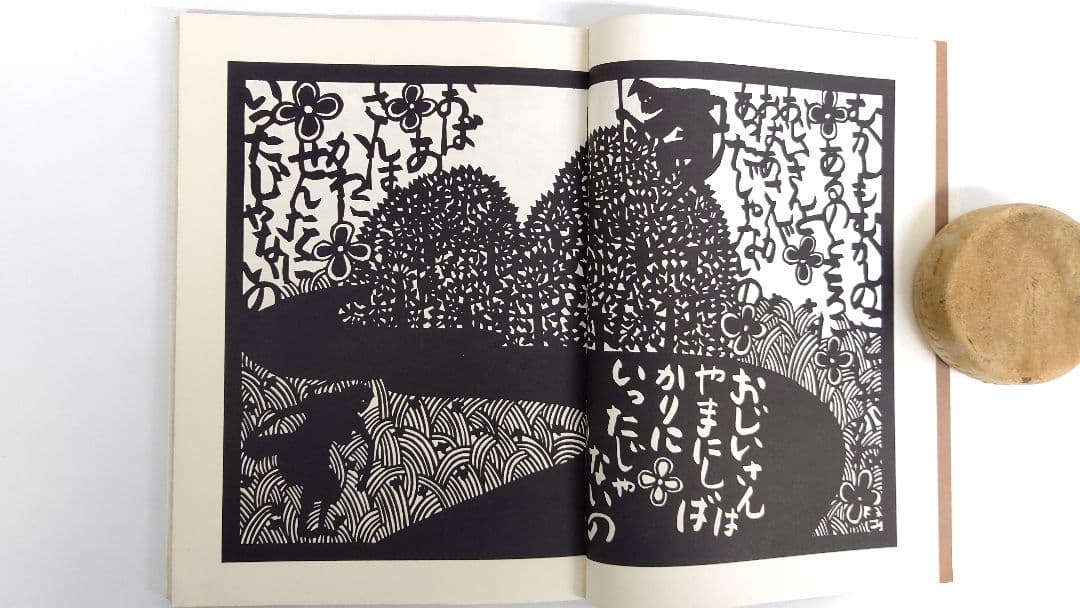 むかしもむかしの
あるのところ
おじいさんと
おばあさんが
あったじゃないの
おじいさんは
やまにしば
かりに
いったじゃ
ないの
おばあ
さんは
かわに
せんたくに
いったじゃないの